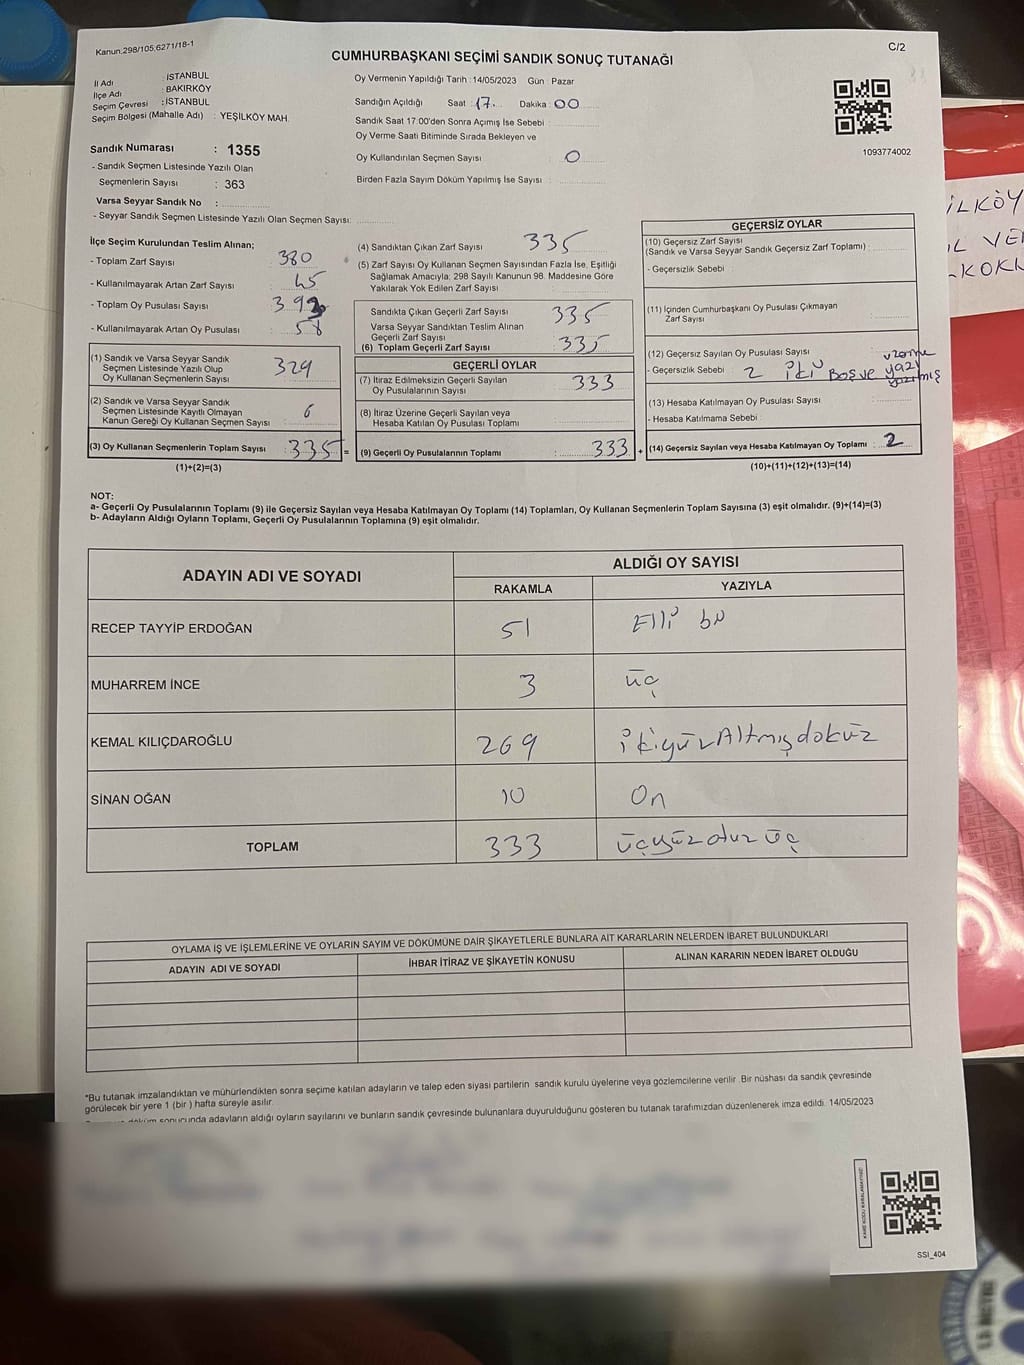 Kanun:298/105;6271/18-1
C/2
CUMHURBAŞKANI SEÇİMİ SANDIK SONUÇ TUTANAĞI
İl Adı : İSTANBUL
İlçe Adı : BAKIRKÖY
Seçim Çevresi : İSTANBUL
Seçim Bölgesi (Mahalle Adı) : YEŞİLKÖY MAH.
Sandık Numarası : 1355
- Sandık Seçmen Listesinde Yazılı Olan
Seçmenlerin Sayısı : 363
Varsa Seyyar Sandık No :
- Seyyar Sandık Seçmen Listesinde Yazılı Olan Seçmen Sayısı:
Oy Vermenin Yapıldığı Tarih :14/05/2023 Gün : Pazar
Sandığın Açıldığı Saat : 17 Dakika : 00
Sandık Saat 17:00'den Sonra Açımış İse Sebebi :
Oy Verme Saati Bitiminde Sırada Bekleyen ve
Oy Kullandırılan Seçmen Sayısı : 0
Birden Fazla Sayım Döküm Yapılmış İse Sayısı :
1093774002
İlçe Seçim Kurulundan Teslim Alınan;
- Toplam Zarf Sayısı : 380
- Kullanılmayarak Artan Zarf Sayısı : 45
- Toplam Oy Pusulası Sayısı : 393
- Kullanılmayarak Artan Oy Pusulası : 58
(1) Sandık ve Varsa Seyyar Sandık
Seçmen Listesinde Yazılı Olup
Oy Kullanan Seçmenlerin Sayısı : 329
(2) Sandık ve Varsa Seyyar Sandık
Seçmen Listesinde Kayıtlı Olmayan
Kanun Gereği Oy Kullanan Seçmen Sayısı : 6
(3) Oy Kullanan Seçmenlerin Toplam Sayısı : 335 =
(1)+(2)=(3)
(4) Sandıktan Çıkan Zarf Sayısı : 335
(5) Zarf Sayısı Oy Kullanan Seçmen Sayısından Fazla İse, Eşitliği
Sağlamak Amacıyla; 298 Sayılı Kanunun 98. Maddesine Göre
Yakılarak Yok Edilen Zarf Sayısı :
Sandıkta Çıkan Geçerli Zarf Sayısı : 335
Varsa Seyyar Sandıktan Teslim Alınan
Geçerli Zarf Sayısı :
(6) Toplam Geçerli Zarf Sayısı : 335
GEÇERLİ OYLAR
(7) İtiraz Edilmeksizin Geçerli Sayılan
Oy Pusulalarının Sayısı : 333
(8) İtiraz Üzerine Geçerli Sayılan veya
Hesaba Katılan Oy Pusulası Toplamı :
(9) Geçerli Oy Pusulalarının Toplamı : 333 +
GEÇERSİZ OYLAR
(10) Geçersiz Zarf Sayısı
(Sandık ve Varsa Seyyar Sandık Geçersiz Zarf Toplamı) :
- Geçersizlik Sebebi :
(11) İçinden Cumhurbaşkanı Oy Pusulası Çıkmayan
Zarf Sayısı :
(12) Geçersiz Sayılan Oy Pusulası Sayısı
- Geçersizlik Sebebi : 2 iki Boş ve üzerine yazı yazılmış
(13) Hesaba Katılmayan Oy Pusulası Sayısı :
- Hesaba Katılmama Sebebi :
(14) Geçersiz Sayılan veya Hesaba Katılmayan Oy Toplamı : 2
(10)+(11)+(12)+(13)=(14)
NOT:
a- Geçerli Oy Pusulalarının Toplamı (9) ile Geçersiz Sayılan veya Hesaba Katılmayan Oy Toplamı (14) Toplamları, Oy Kullanan Seçmenlerin Toplam Sayısına (3) eşit olmalıdır. (9)+(14)=(3)
b- Adayların Aldığı Oyların Toplamı, Geçerli Oy Pusulalarının Toplamına (9) eşit olmalıdır.
ADAYIN ADI VE SOYADI
ALDIĞI OY SAYISI
RAKAMLA YAZIYLA
RECEP TAYYİP ERDOĞAN 51 Elli bir
MUHARREM İNCE 3 üç
KEMAL KILIÇDAROĞLU 269 ikiyüzAltmışdokuz
SİNAN OĞAN 10 On
TOPLAM 333 üçyüzotuz üç
OYLAMA İŞ VE İŞLEMLERİNE VE OYLARIN SAYIM VE DÖKÜMÜNE DAİR ŞİKAYETLERLE BUNLARA AİT KARARLARIN NELERDEN İBARET BULUNDUKLARI
ADAYIN ADI VE SOYADI İHBAR İTİRAZ VE ŞİKAYETİN KONUSU ALINAN KARARIN NEDEN İBARET OLDUĞU
*Bu tutanak imzalandıktan ve mühürlendikten sonra seçime katılan adayların ve talep eden siyasi partilerin sandık kurulu üyelerine veya gözlemcilerine verilir .Bir nüshası da sandık çevresinde
görülecek bir yere 1 (bir ) hafta süreyle asılır.
döküm sonucunda adayların aldığı oyların sayılarını ve bunların sandık çevresinde bulunanlara duyurulduğunu gösteren bu tutanak tarafımızdan düzenlenerek imza edildi. 14/05/2023
SSİ_404